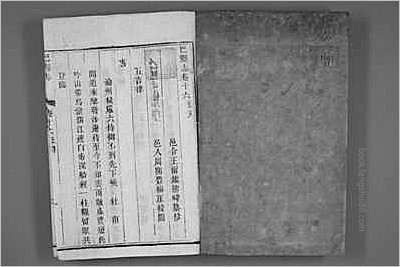 巴縣志卷十六
邑令王爾鑑熊峰纂修
邑人周開豐梅厓校閱
五言律
詩
渝州候嚴六侍御不到先下峽 杜甫
聞道乘驄發沙邊待至今不知雲雨散虛費短長
吟山帶烏蠻闊江連白帝深船經一柱觀留眼共
登臨
巴縣志